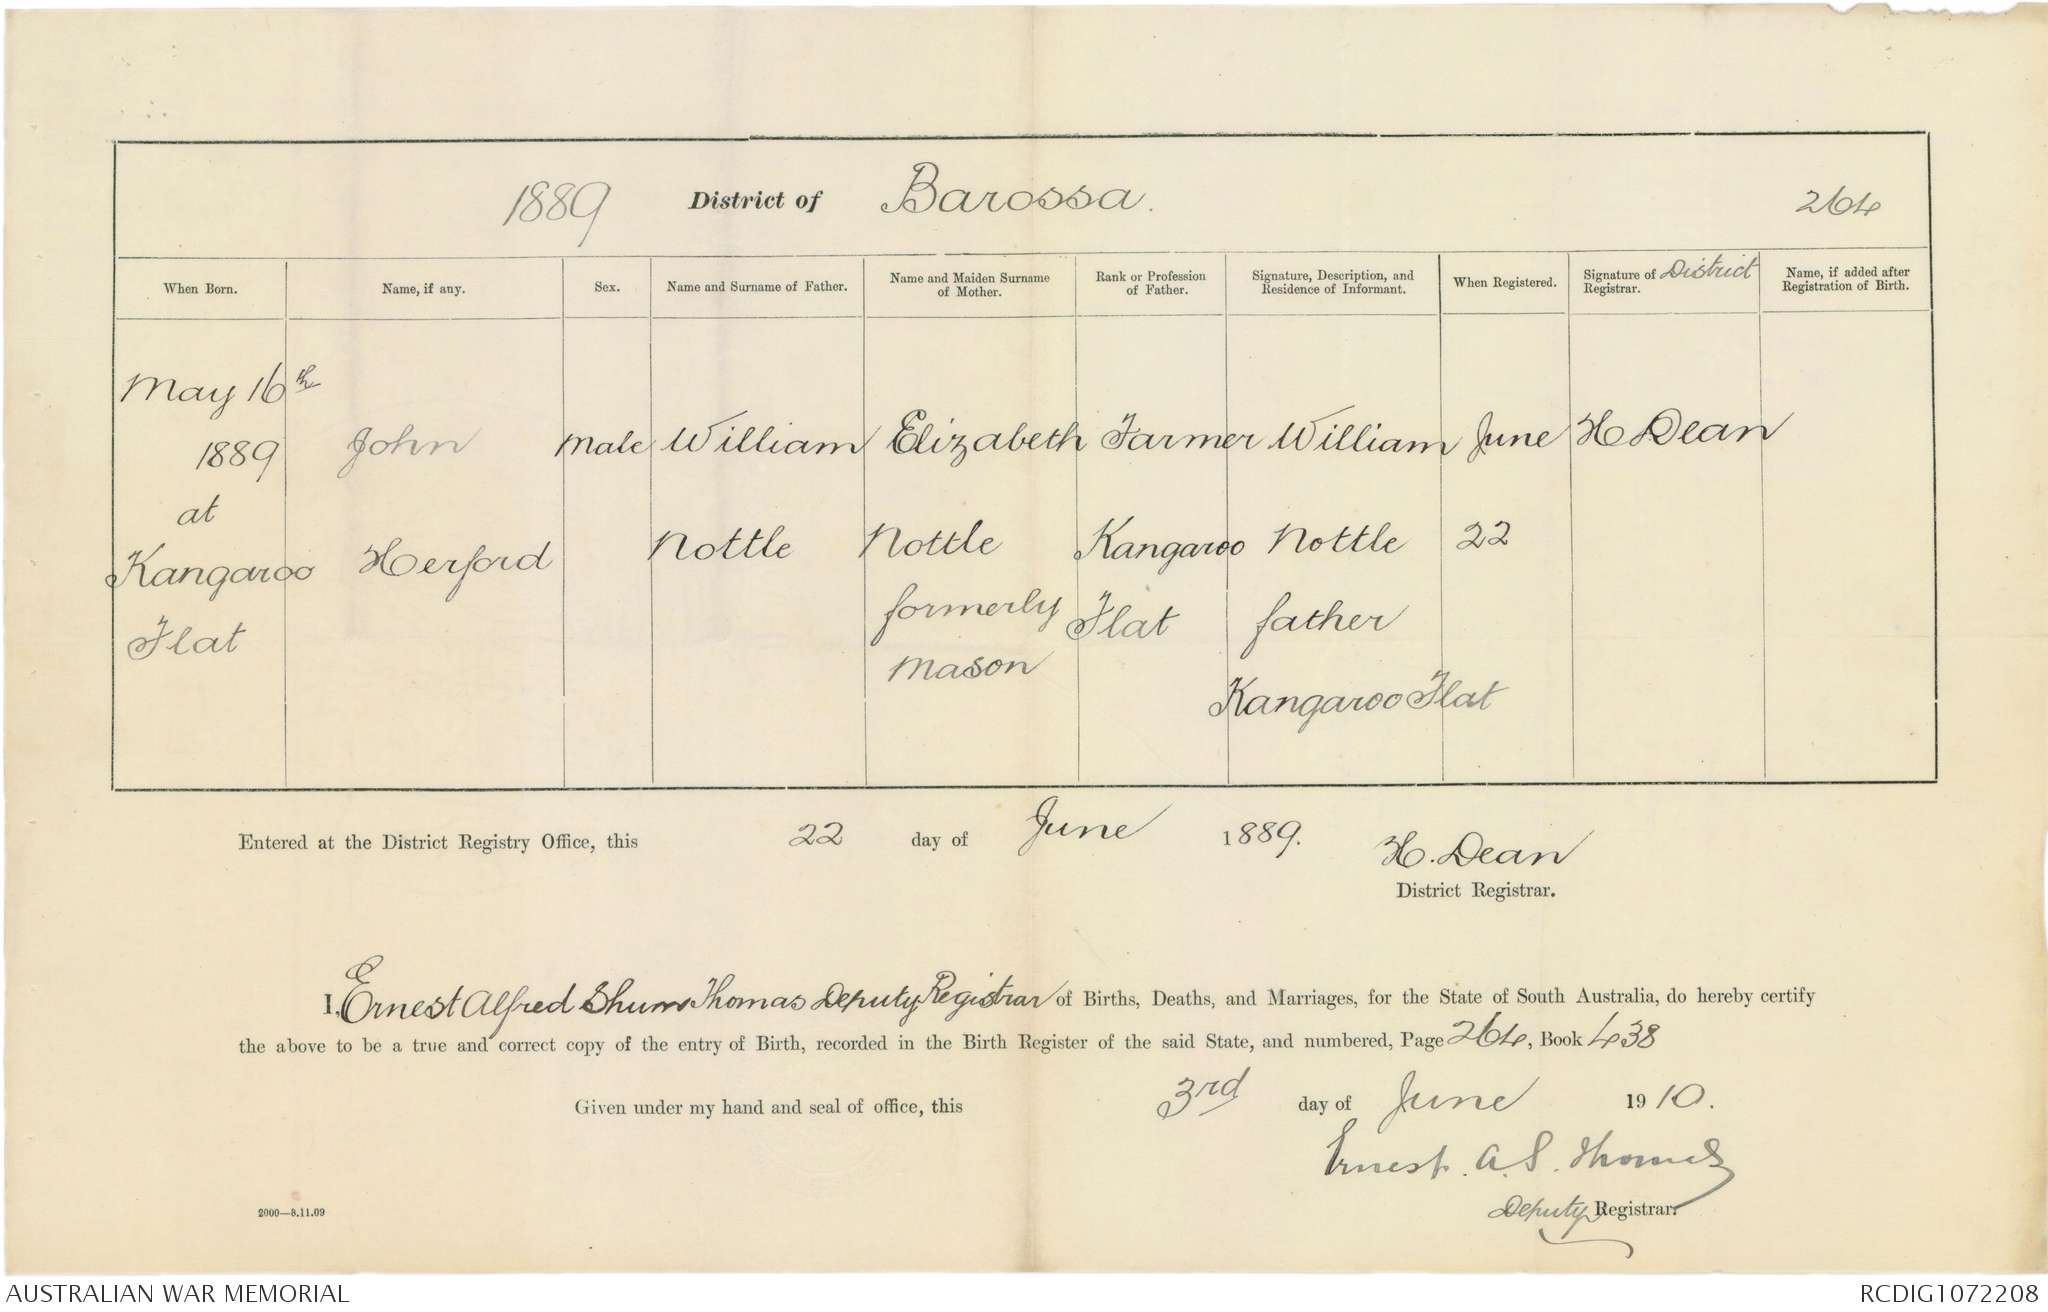 1889 District of Barossa. 264
When Born.
Name, if any.
Sex.
Name and Surname of Father.
Name and Maiden Surname
of Mother.
Rank or Profession
of Father.
Signature, Description, and
Residence of Informant.
When Registered.
Signature of District
Registrar.
Name, if added after
Registration of Birth.
May 16th
1889
at
Kangaroo
Flat
John
Herford
Male
William
Nottle
Elizabeth
Nottle
formerly
Mason
Farmer
Kangaroo
Flat
William
Nottle
father
Kangaroo Flat
June
22
H Dean
Entered at the District Registry Office, this 22 day of June 1889.
H. Dean
District Registrar.
I, Ernest Alfred Shum Thomas Deputy Registrar of Births, Deaths, and Marriages, for the State of South Australia, do hereby certify
the above to be a true and correct copy of the entry of Birth, recorded in the Birth Register of the said State, and numbered, Page 264, Book 438
Given under my hand and seal of office, this 3rd day of June 1910.
Ernest. A. S. Thomas
Deputy Registrar.
2000—8.11.09
AUSTRALIAN WAR MEMORIAL
RCDIG1072208